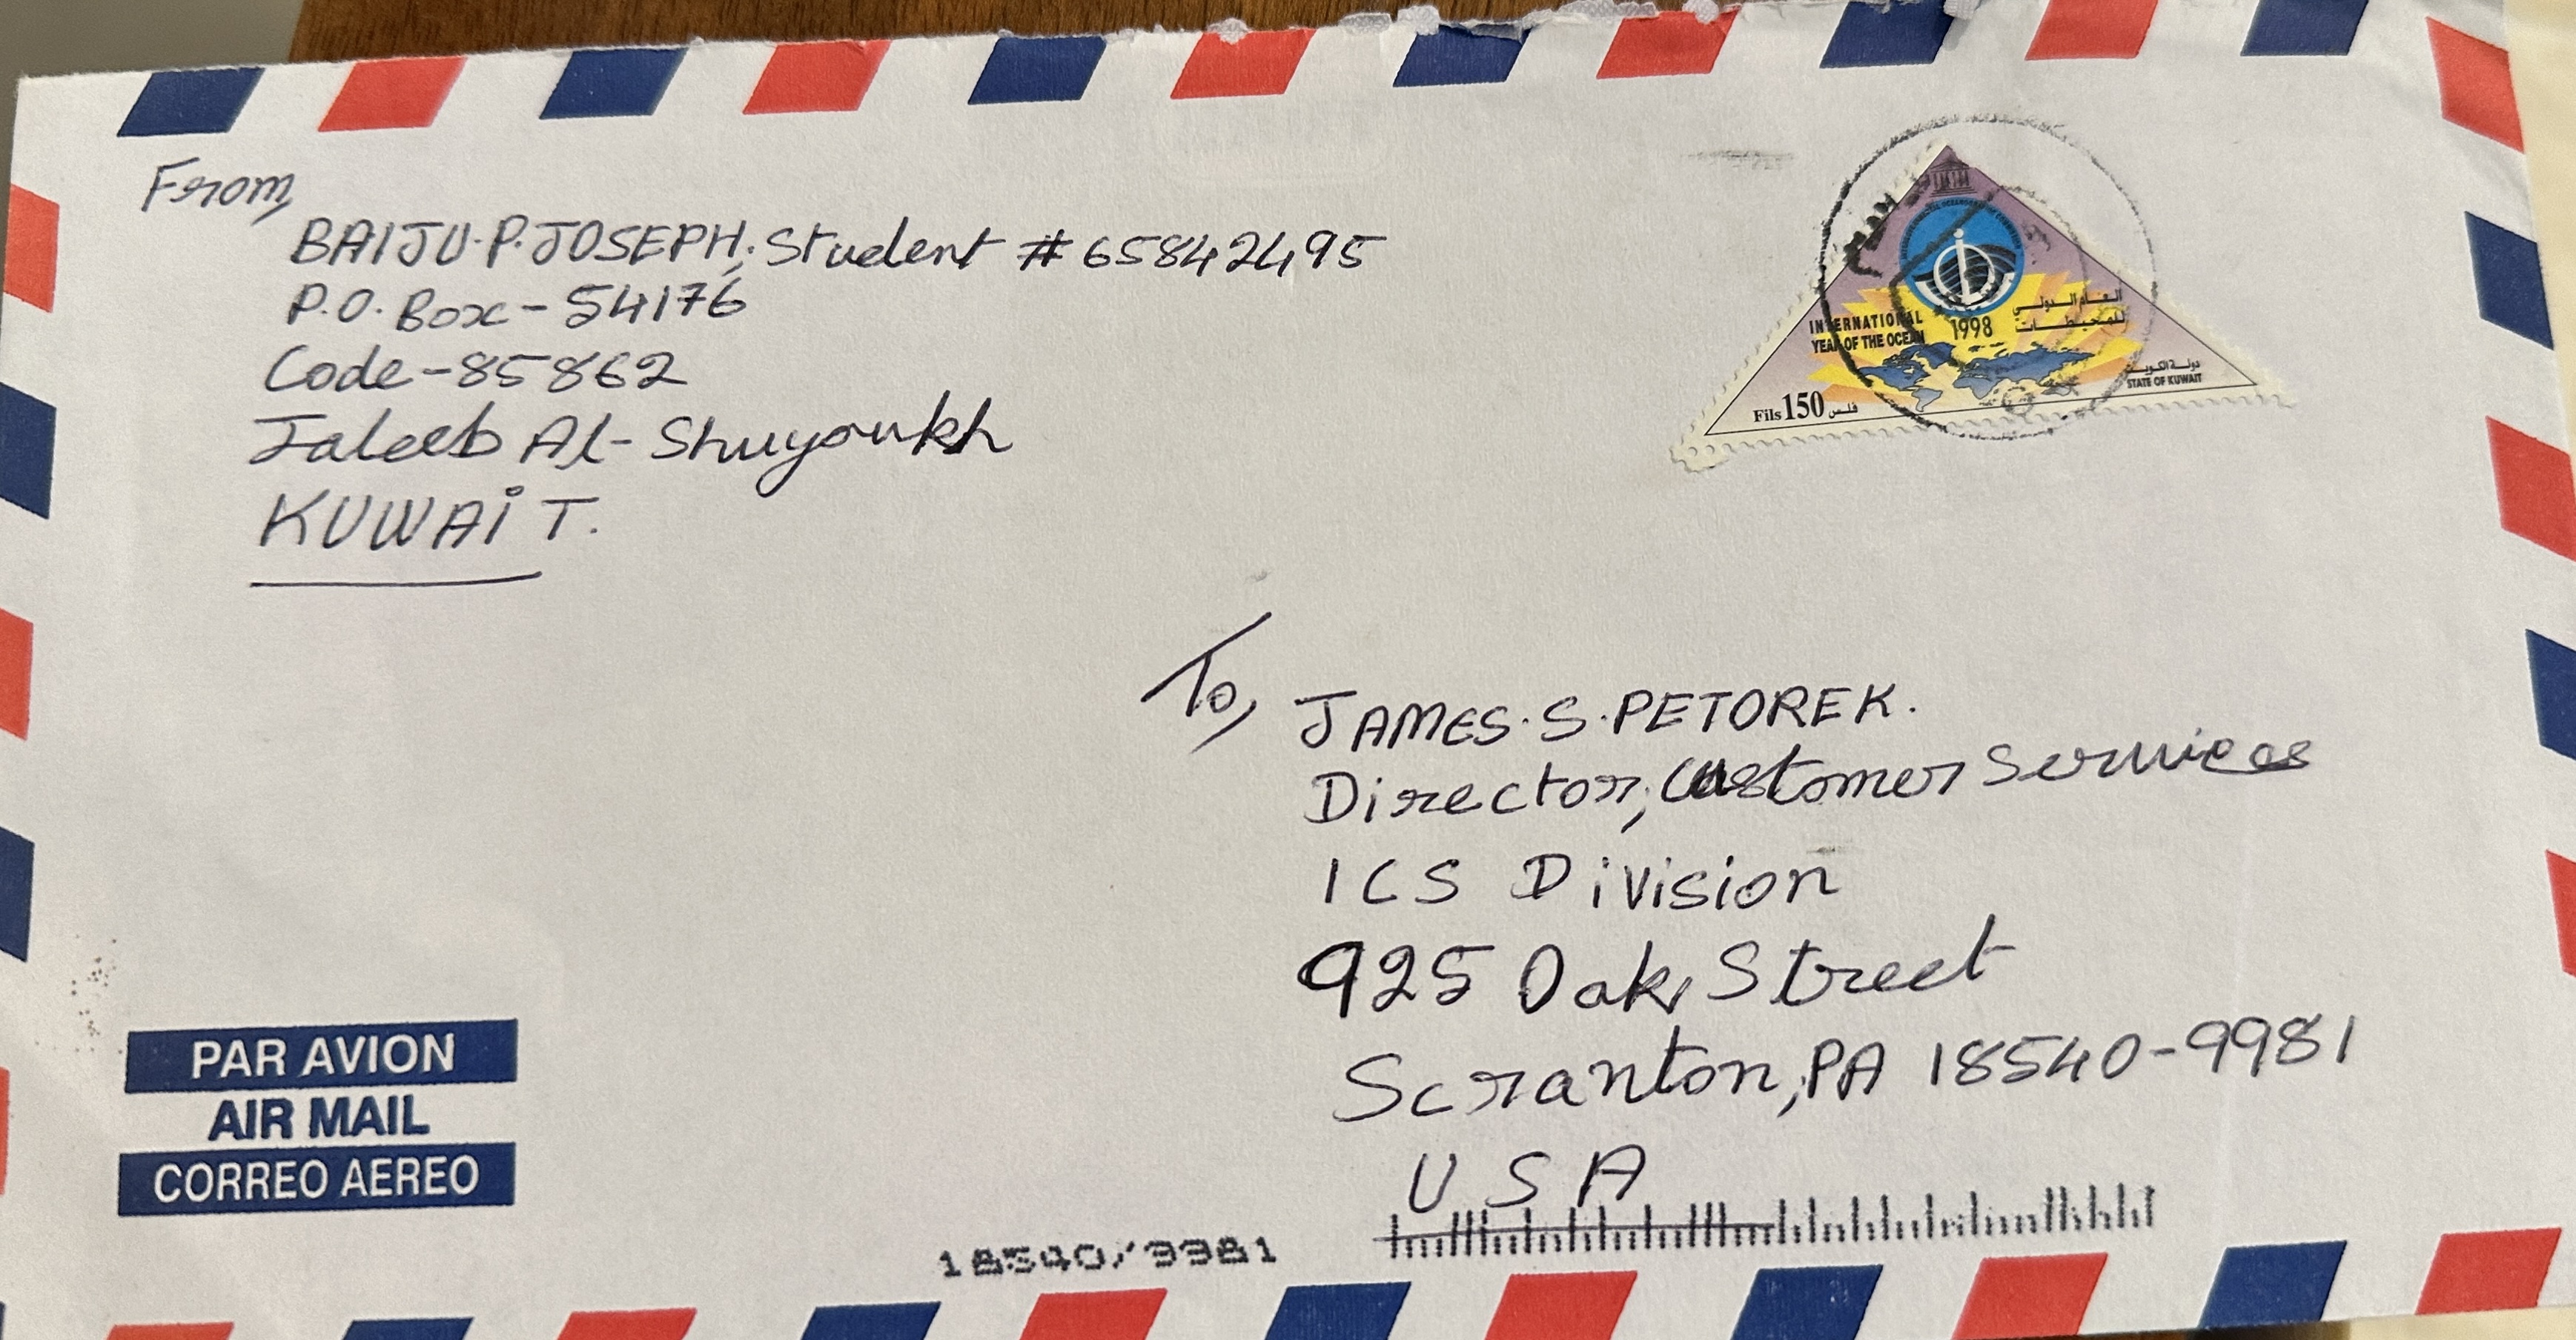 From,
BAIJU.P.JOSEPH, Student # 65842495
P.O. Box - 54176
Code - 85862
Jaleeb Al-Shuyoukh
KUWAiT.
INTERNATIONAL
YEAR OF THE OCEAN
1998
العام الدولي
للمحيطات
دولة الكويت
STATE OF KUWAIT
Fils 150 فلس
To,
JAMES.S.PETOREK.
Director, Customer Services
ICS Division
925 Oak Street
Scranton, PA 18540-9981
USA
PAR AVION
AIR MAIL
CORREO AEREO
18540/9981